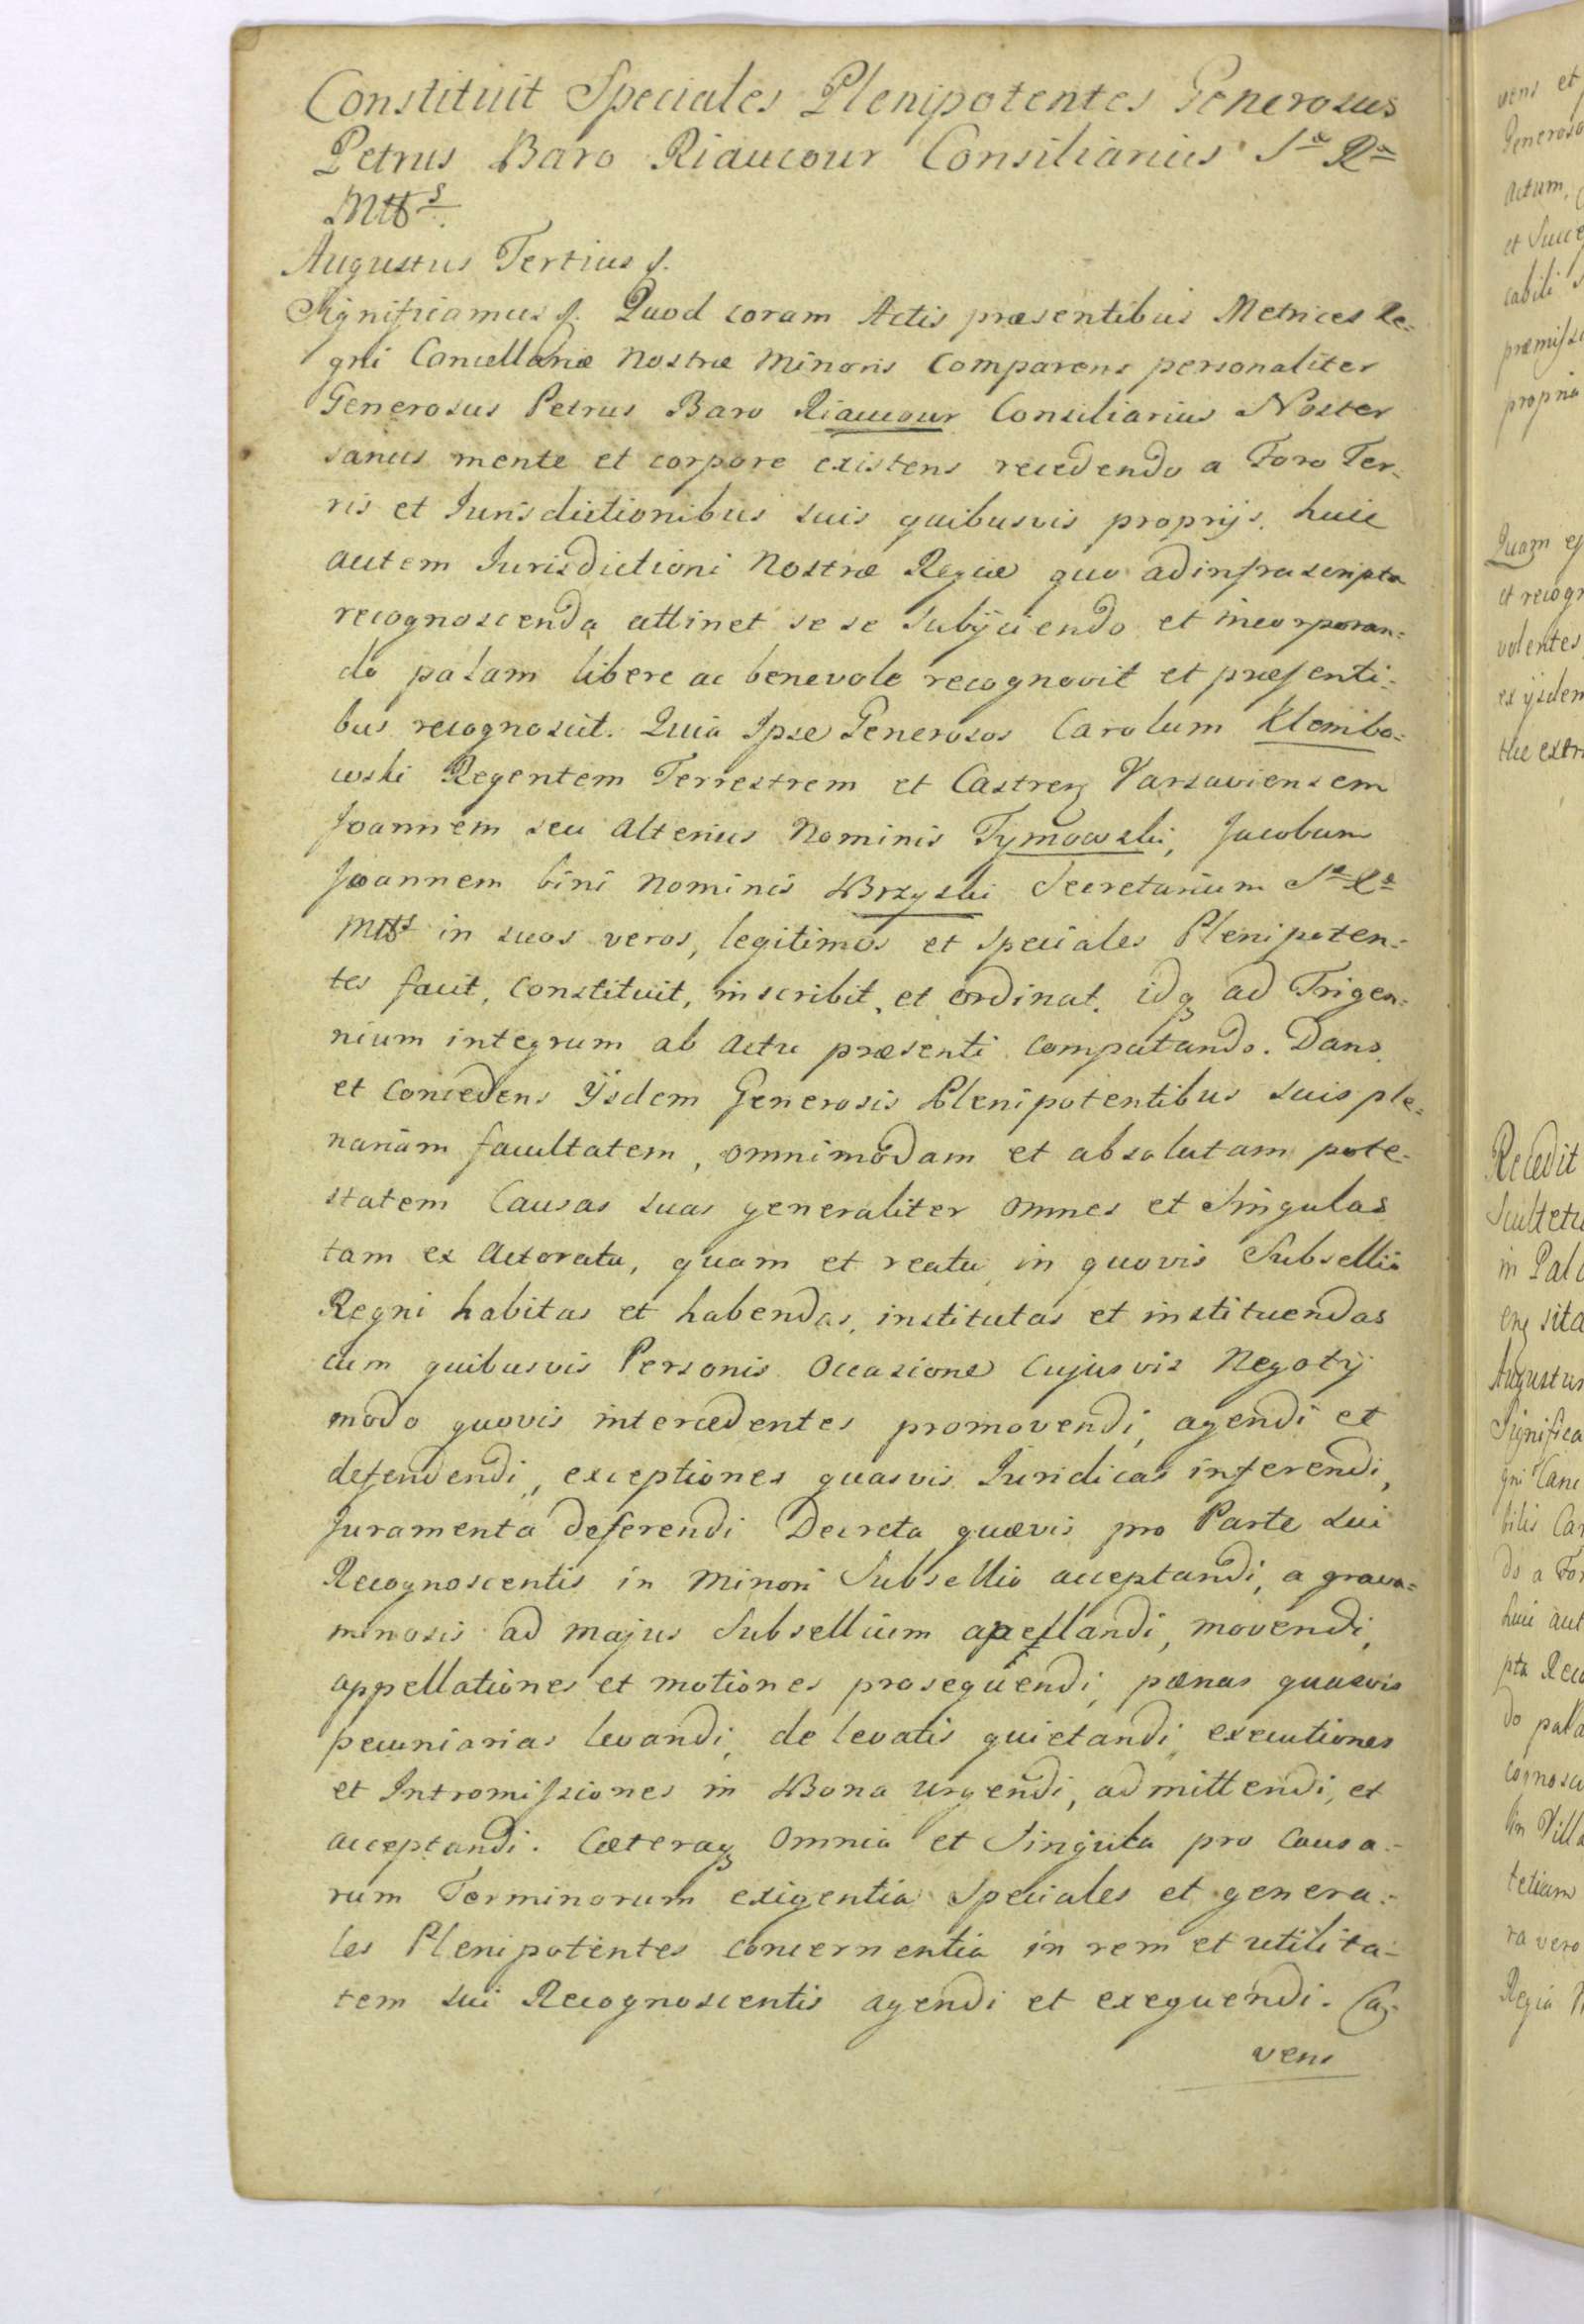 Constituit Speciales Plenipotentes Generosus
Petrus Baro Riaucour Consiliarius Sæ Ræ
Mttis.
Augustus Tertius f.
Significamus f. Quod coram Actis præsentibus Metrices Re=
gni Cancellariæ Nostræ Minoris Comparens personaliter
Generosus Petrus Baro Riaucour Consiliarius Noster
sanus mente et corpore existens recedendo a Foro Ter=
ris et Jurisdictionibus suis quibusvis proprijs, huic
autem Jurisdictioni Nostræ Regiæ quo ad infrascripta
recognoscenda attinet se se Subijciendo et incorporan=
do palam libere ac benevole recognovit et præsenti=
bus recognoscit. Quia Ipse Generosos Carolum Klembo=
wski Regentem Terrestrem et Castren Varsaviensem
Joannem seu alterius Nominis Tymowski, Jacobum
Joannem bini Nominis Brzyski Secretarium Sæ Ræ
Mttis in suos veros, legitimos et Speciales Plenipoten=
tes facit, constituit, inscribit, et ordinat. idq ad Trigen=
nium integrum ab actu præsenti computando. Dans
et Concedens ijsdem Generosis Plenipotentibus suis ple=
nariam facultatem, omnimodam et absolutam pote=
statem Causas suas generaliter Omnes et Singulas
tam ex Actoratu, quam et reatu in quovis Subsellio
Regni habitas et habendas, institutas et instituendas
cum quibusvis Personis Occasione Cujusvis Negotij
modo quovis intercedentes promovendi, agendi et
defendendi, exceptiones quasvis Juridicas inferendi,
Juramenta deferendi Decreta quævis pro Parte Sui
Recognoscentis in Minori Subsellio acceptandi, a grava=
minosis ad majus Subsellium apellandi, movendi,
appellationes et motiones prosequendi, pænas quasvis
pecuniarias levandi, de levatis quietandi executiones
et Intromissiones in Bona urgendi, admittendi, et
acceptandi. Cæteraq Omnia et Singula pro Causa=
rum Terminorum exigentia Speciales et genera=
les Plenipotentes concernentia in rem et utilita=
tem sui Recognoscentis agendi et exequendi. Ca=
vens
vens et
Generoso
Actum,
et Succe
cabili
præmisso
propria
Quam
et recogn
volentes
ex ijsdem
thæ extr
Recedit
Scultetu
in Pala
en sita
Augustus
Significa
gni Canc
bilis Car
do a For
huic aut
pta Reco
do pala
cognosci
in Villa
tetiam
ra vero
Regia